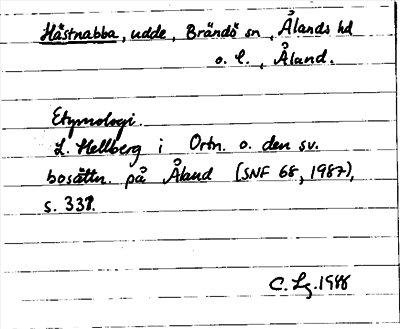 Hästnabba, udde, Brändö sn, Ålands hd
o. l., Åland.
Etymologi.
L. Hellberg i Ortn. o. den sv.
bosättn. på Åland (SNF 68, 1987),
s. 331.
C. Lg. 1988